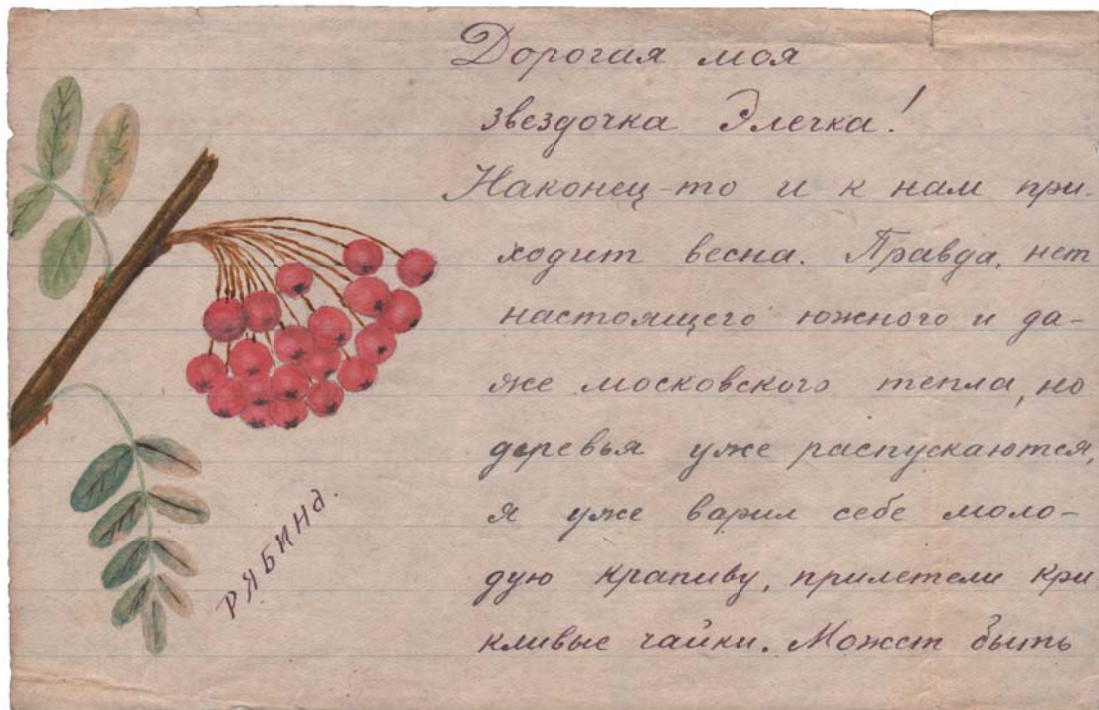 Дорогая моя
звездочка Элегка!
Наконец-то и к нам при-
ходит весна. Правда, нет
настоящего южного и да-
же московского тепла, но
деревья уже распускаются,
я уже варил себе моло-
дую крапиву, прилетели кри
кливые чайки. Можст быть
РЯБИНа.